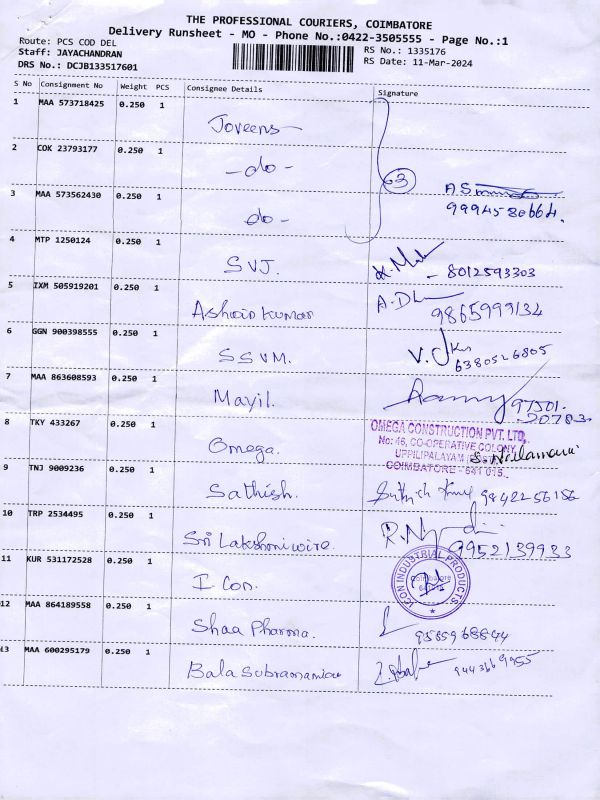 THE PROFESSIONAL COURIERS, COIMBATORE
Delivery Runsheet - MO - Phone No.:0422-3505555 - Page No.:1
Route: PCS COD DEL
RS No.: 1335176
Staff: JAYACHANDRAN
RS Date: 11-Mar-2024
DRS No.: DCJB133517601
S No Consignment No Weight PCS Consignee Details Signature
1 MAA 573718425 0.250 1 Joveens
2 COK 23793177 0.250 1 -do-
63
3 MAA 573562430 0.250 1 do-
9994580664.
4 MTP 1250124 0.250 1 SVJ.
- 8012593303
5 IXM 505919201 0.250 1 Ashwin Kumar
9865999134
6 GGN 900398555 0.250 1 SSVM.
6380526805
7 MAA 863608593 0.250 1 Mayil.
97501.
20783.
8 TKY 433267 0.250 1 Omega.
OMEGA CONSTRUCTION PVT. LTD,
No: 46, CO-OPERATIVE COLONY
UPPILIPALAYAM
COIMBATORE - 641 015.
9 TNJ 9009236 0.250 1 Sathish.
9442256186
10 TRP 2534495 0.250 1 Sri Lakshmi wire.
9952139933
11 KUR 531172528 0.250 1 I Con.
ICON INDUSTRIAL PRODUCTS
Coimbatore
12 MAA 864189558 0.250 1 Shaa Pharma.
9585968844
13 MAA 600295179 0.250 1 Bala Subramanian
9443669955